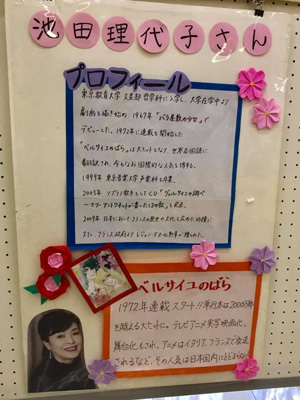 池田理代子さん
プロフィール
東京教育大学 文学部 哲学科に入学し、大学在学中より
劇画を描き始め、1967年「バラ屋敷の少女」で
デビューした。1972年に連載を開始した
「ベルサイユのばら」は大ヒットとなり、世界各国語に
翻訳され、今もなお国際的な人気を博する。
1999年 東京音楽大学 声楽科を卒業。
2005年 ソプラノ歌手としてCD「ヴェルサイユの調べ
〜マリー・アントワネットが書いた12の歌」を発表。
2009年 日本において フランスの歴史や文化を広めた功績に
対し、フランス政府より レジオンドヌール勲章が贈られた。
ベルサイユのばら
1972年連載スタート!!単行本は2000万部
を越える大ヒットに。テレビアニメ 実写映画化。
舞台化もされ、アニメはイタリア、フランスで放送
されるなど、その人気は日本国内にとどまらない